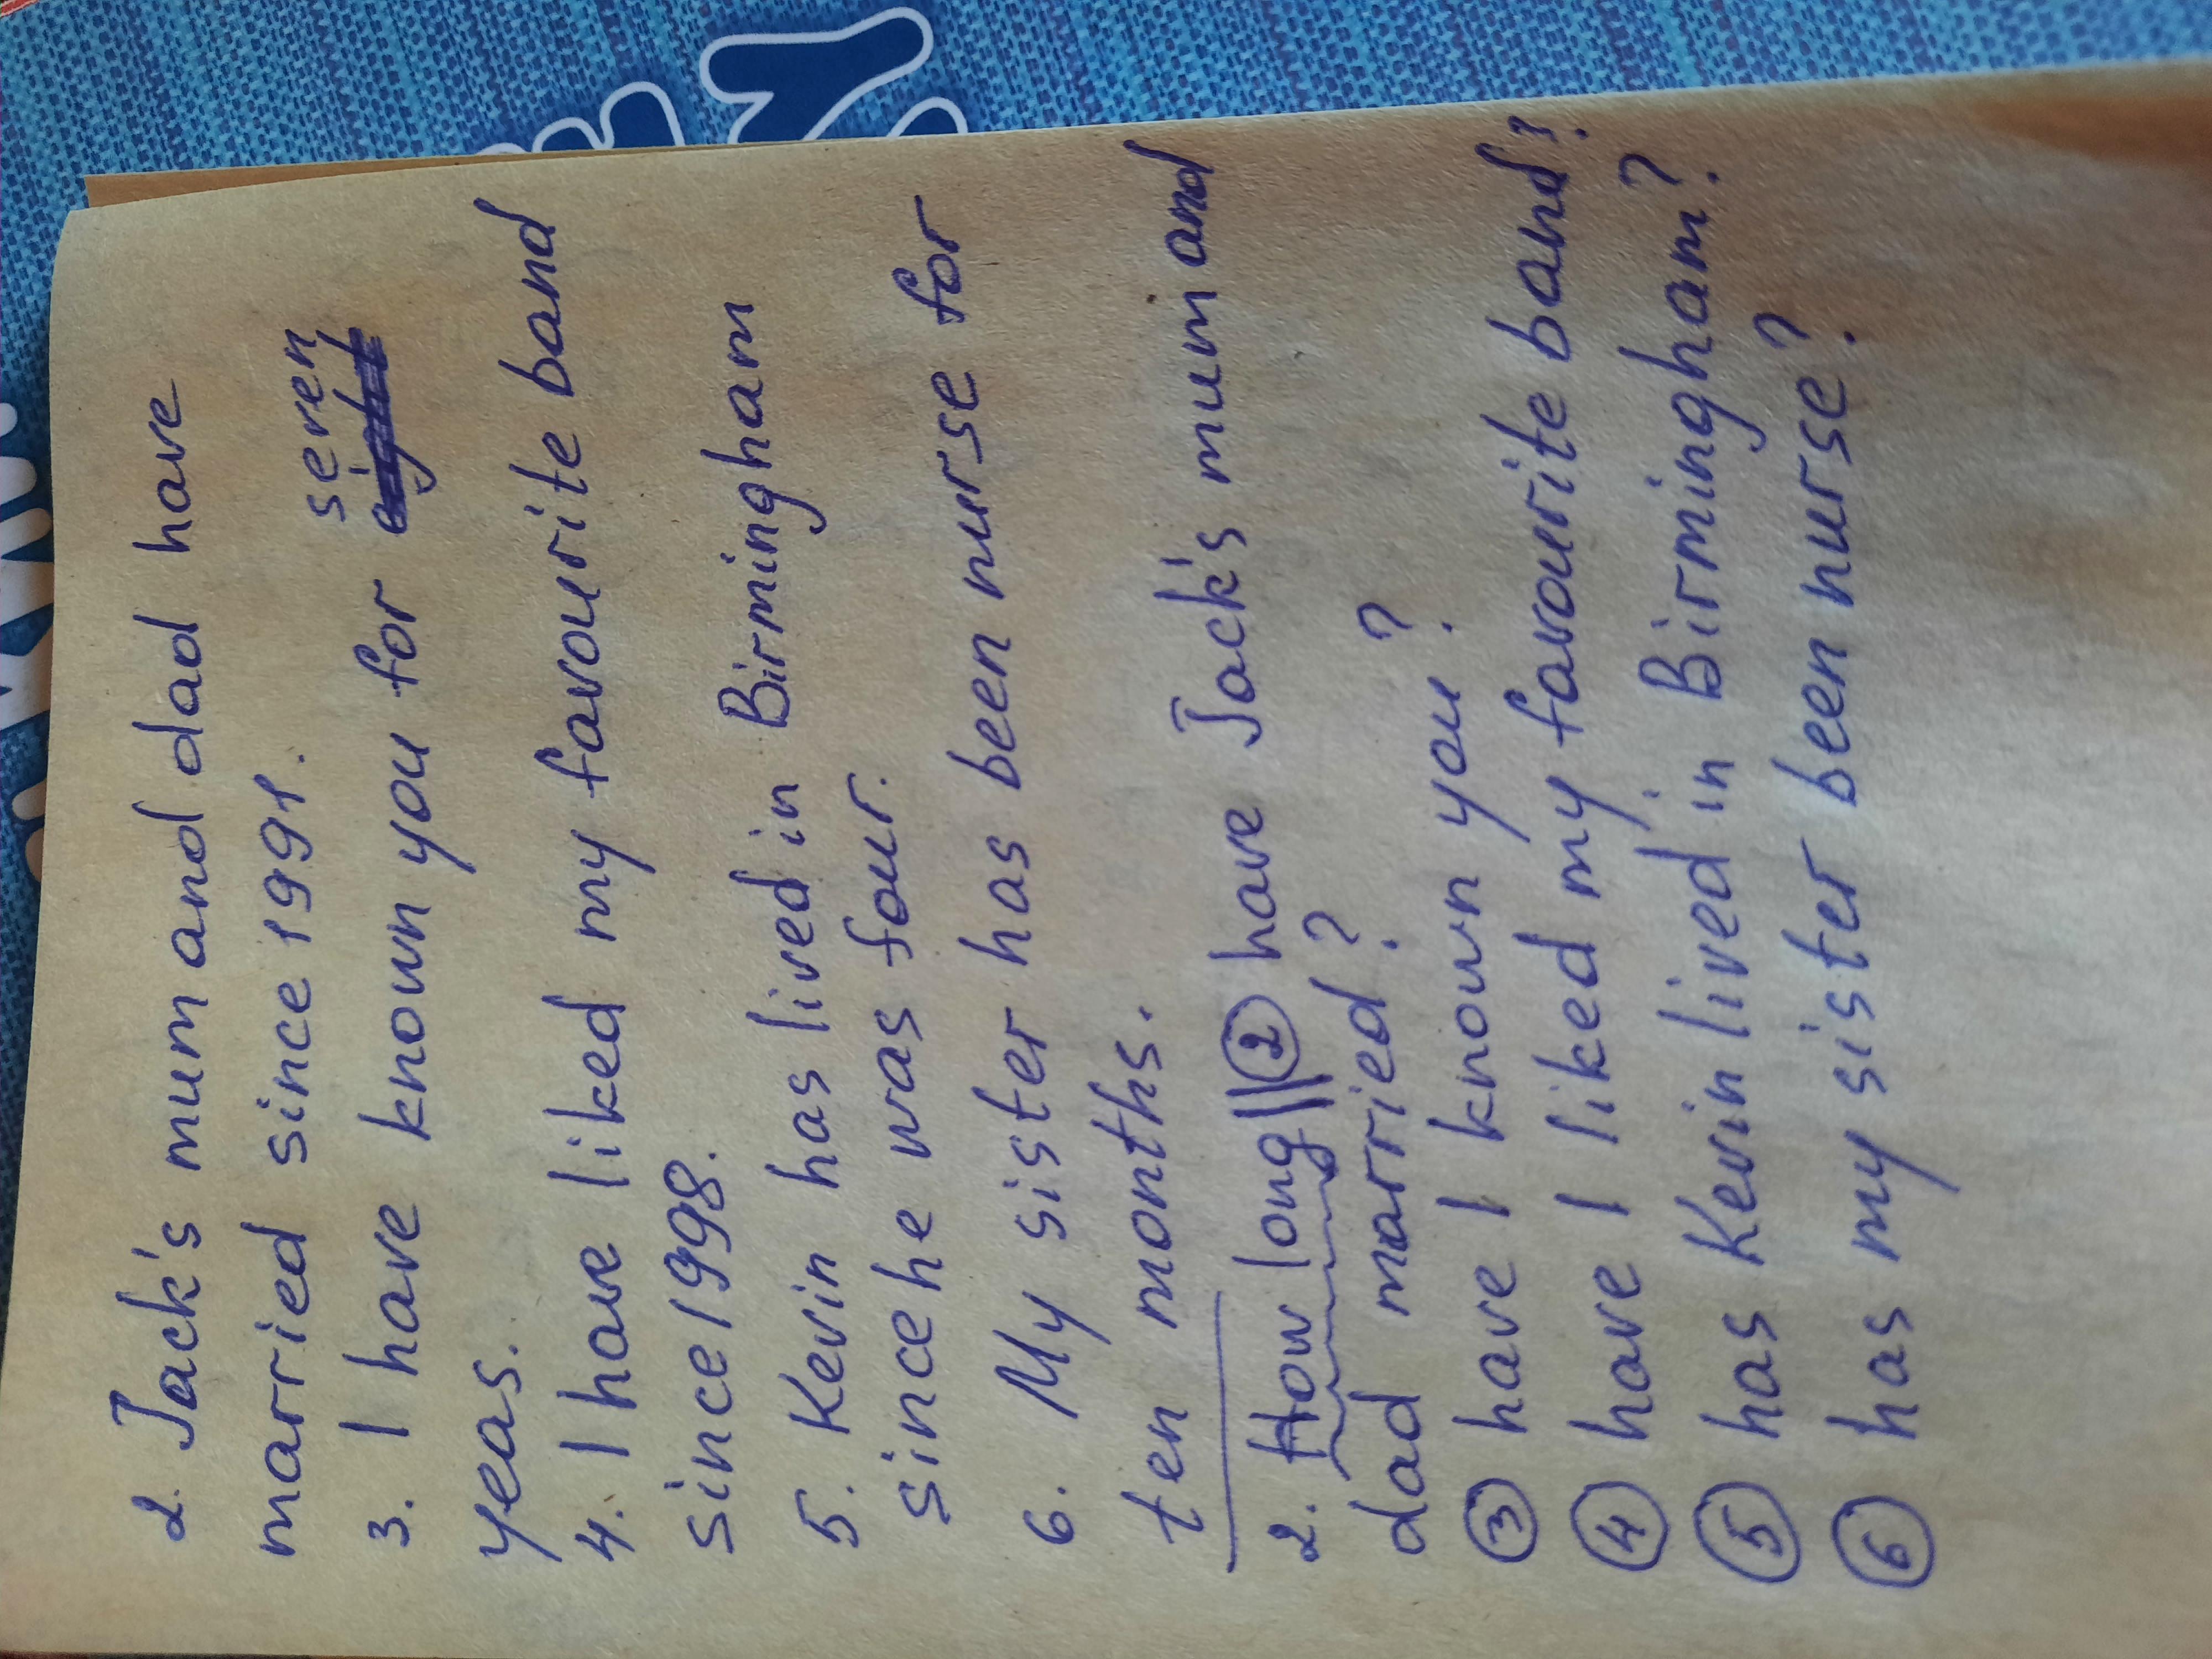 2. Jack's mum and dad have
married since 1991.
seven
3. I have known you for eight
yeas.
4. I have liked my favourite band
since 1998.
5. Kevin has lived in Birmingham
since he was four.
6. My sister has been nurse for
ten months.
2. How long || ② have Jack's mum and
dad married?
③ have I known you?
④ have I liked my favourite band?
⑤ has Kevin lived in Birmingham?
⑥ has my sister been nurse?